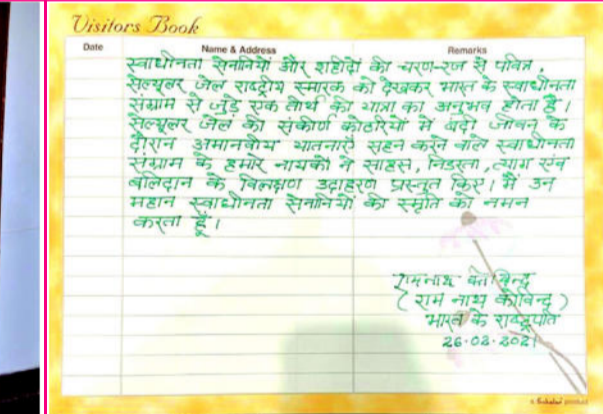 Visitors Book
Date Name & Address Remarks
स्वाधीनता सेनानियों और शहीदों की चरण-रज से पवित्र,
सेल्यूलर जेल राष्ट्रीय स्मारक को देखकर भारत के स्वाधीनता
संग्राम से जुड़े एक तीर्थ की यात्रा का अनुभव होता है।
सेल्यूलर जेल की संकीर्ण कोठरियों में बंदी जीवन के
दौरान अमानवीय यातनाएं सहन करने वाले स्वाधीनता
संग्राम के हमारे नायकों ने साहस, निडरता, त्याग एवं
बलिदान के विलक्षण उदाहरण प्रस्तुत किए। मैं उन
महान स्वाधीनता सेनानियों की स्मृति को नमन
करता हूँ।
रामनाथ कोविन्द
(राम नाथ कोविन्द)
भारत के राष्ट्रपति
26.02.2021